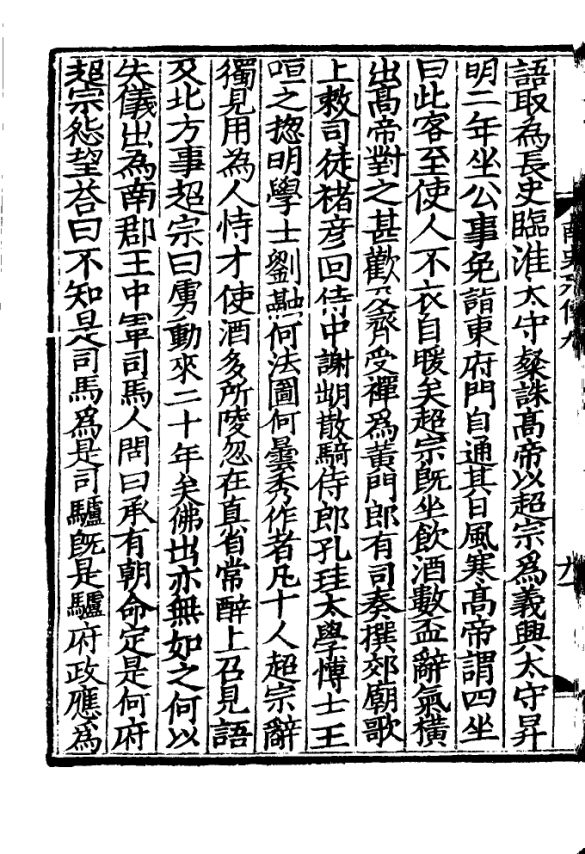 語取為長史臨淮太守粲誅髙帝以超宗爲義興太守昇
明二年坐公事免詣東府門自通其日風寒髙帝謂四坐
曰此客至使人不衣自暖矣超宗旣坐飮酒數盃辭氣橫
出髙帝對之甚歡及齊受禪爲黃門郎有司奏撰郊廟歌
上敕司徒褚彦回侍中謝朏散騎侍郎孔珪太學博士王
咺之揔明學士劉融何法圖何曇秀作者凡十人超宗辭
獨見用為人恃才使酒多所陵忽在直省常醉上召見語
及北方事超宗曰虜動來二十年矣佛出亦無如之何以
失儀出為南郡王中軍司馬人問曰承有朝命定是何府
超宗怨望荅曰不知是司馬爲是司驢旣是驢府政應爲